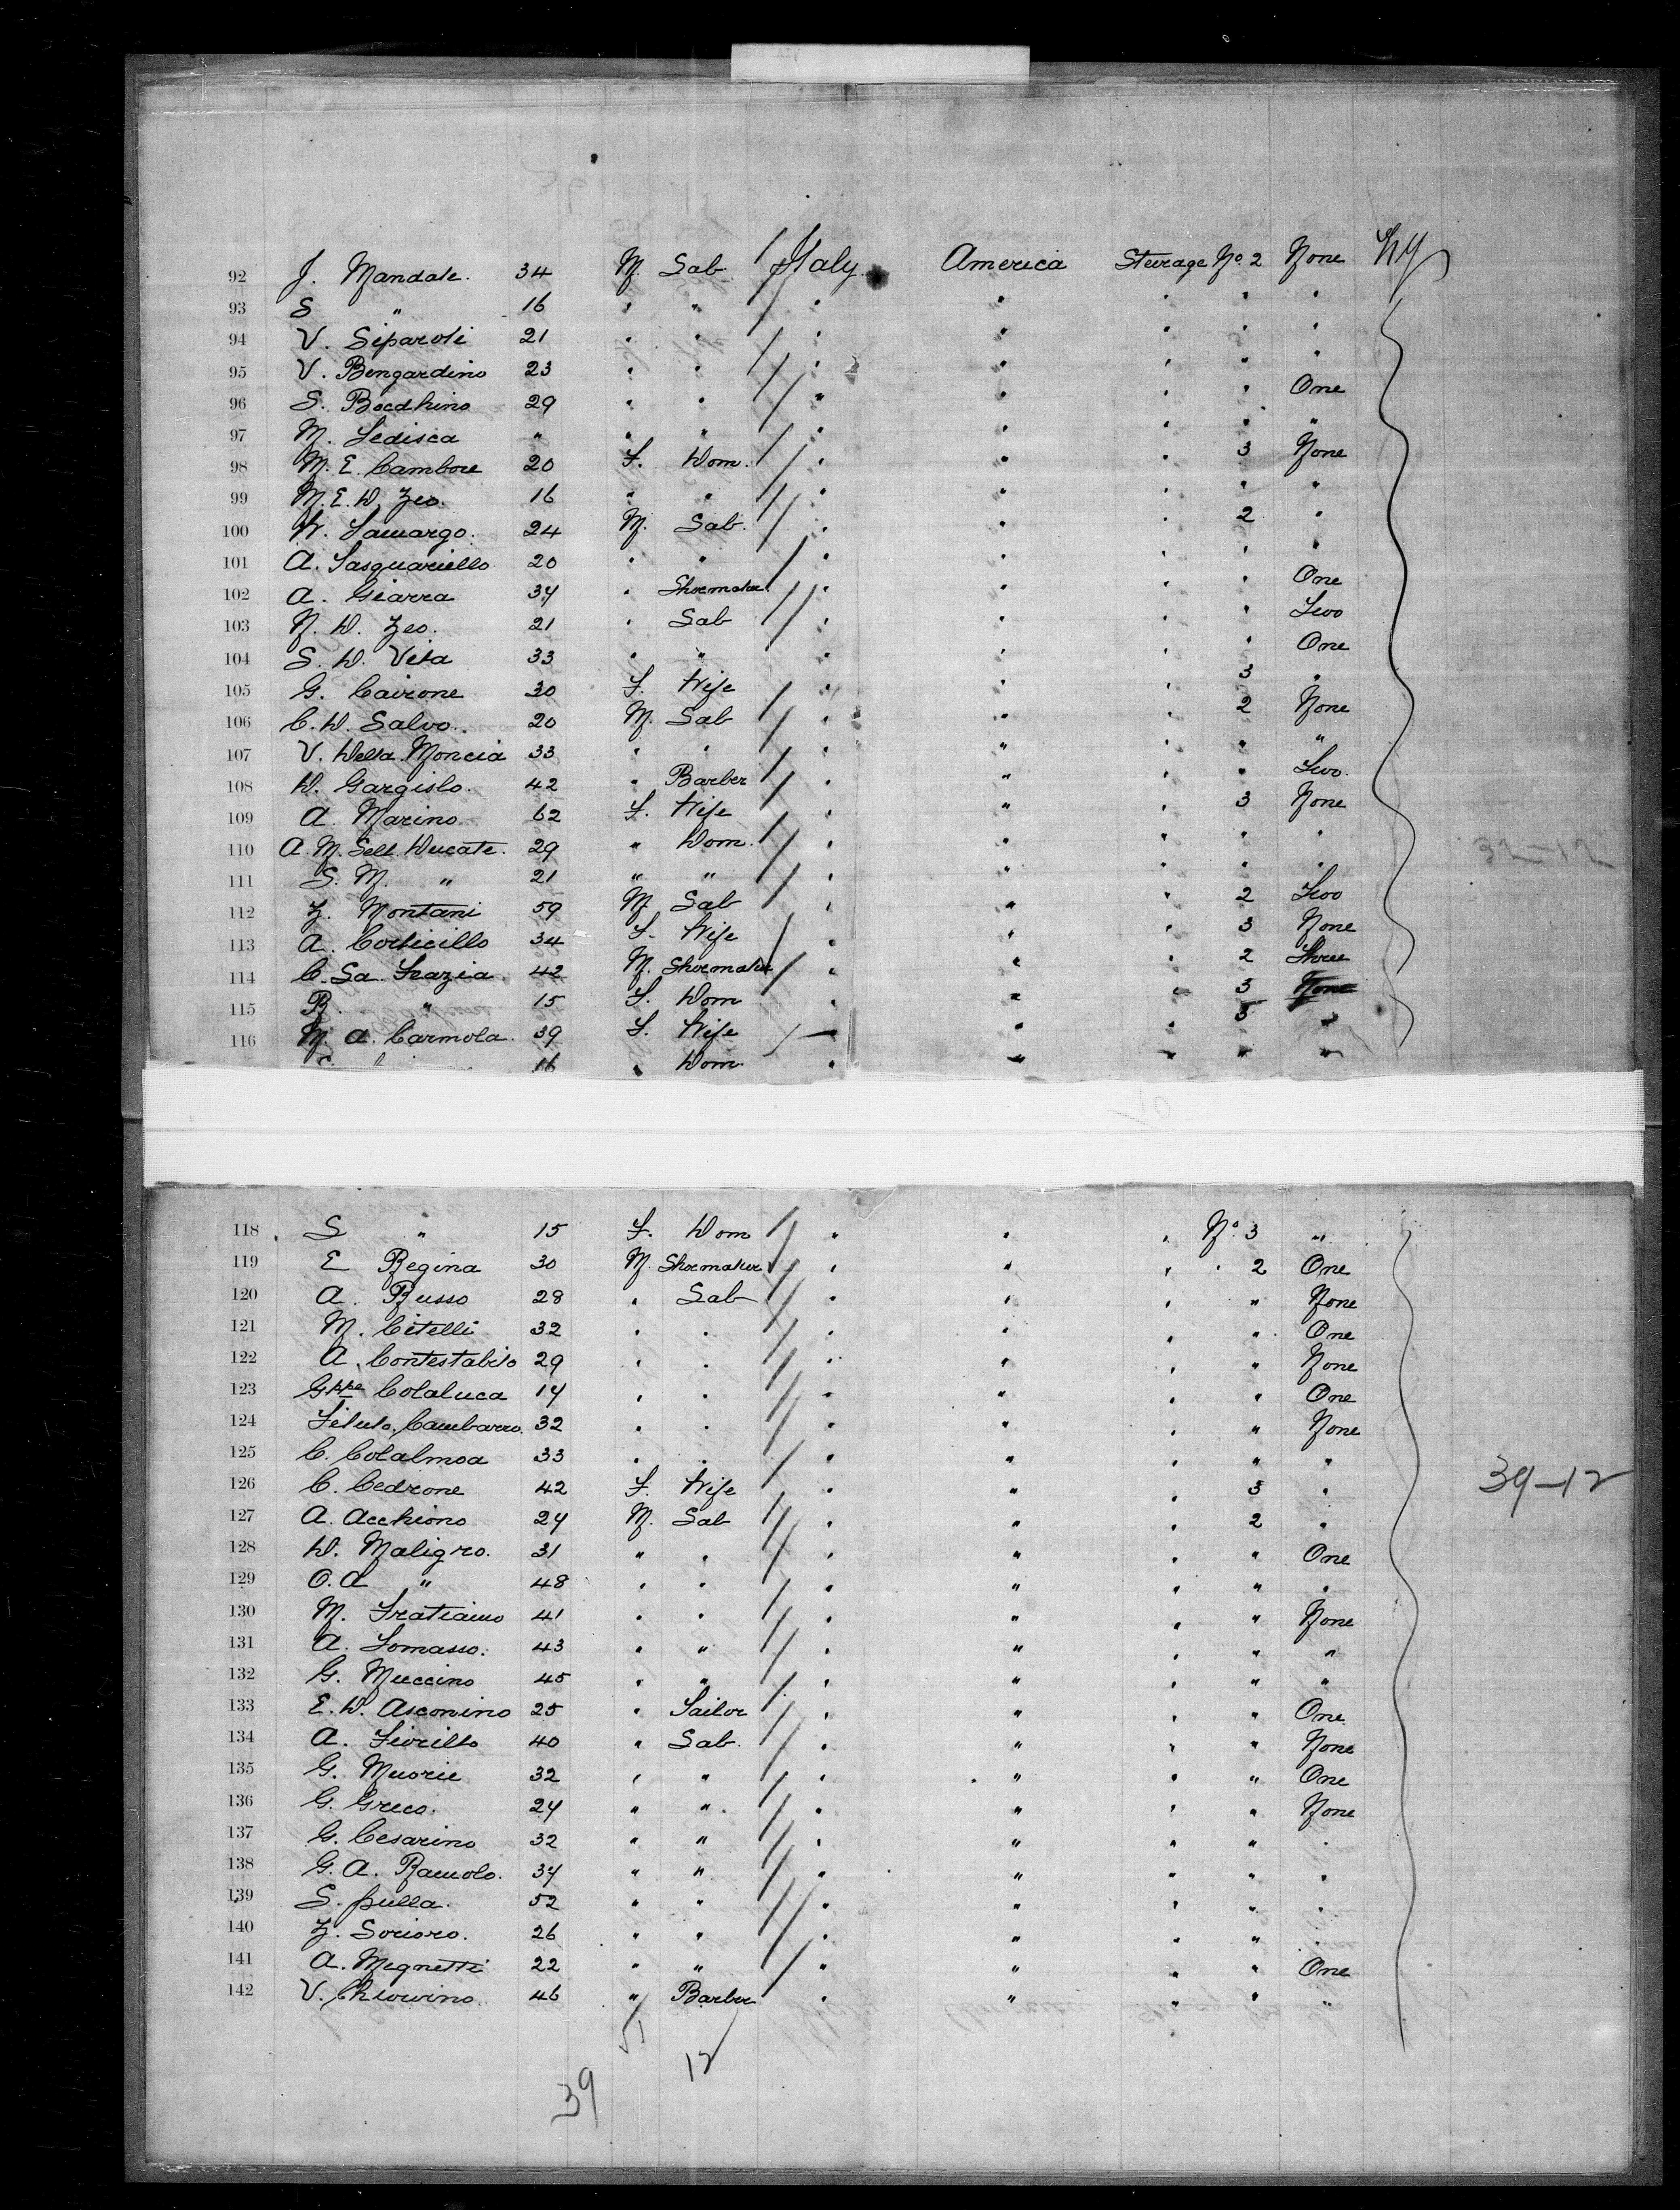 92 J. Mandate. 34 M. Lab Italy America Steerage No. 2 None NY
93 S " 16 " " " " " " "
94 V. Siparoli 21 " " " " " " "
95 V. Bengardino 23 " " " " " " "
96 S. Bocchino 29 " " " " " " One
97 M. Tedisca " " " " " " " "
98 M. E. Cambore 20 F. Dom. " " " 3 None
99 M. E. D. Zeo. 16 " " " " " " "
100 Lamargo. 24 M. Lab. " " " 2 "
101 A. Pasquariello 20 " " " " " " "
102 A. Giarra 34 " Shoemaker " " " " One
103 N. D. Zeo. 21 " Lab " " " " Two
104 S. D. Vita 33 " " " " " " One
105 G. Cairone 30 F. Wife " " " 3 "
106 C. D. Salvo. 20 M. Lab " " " 2 None
107 V. Della Moncia 33 " " " " " " "
108 D. Gargislo. 42 " Barber " " " " Two.
109 A. Marino 62 F. Wife " " " 3 None
110 A. M. Dell Ducate. 29 " Dom. " " " " "
111 S. M. " 21 " " " " " " "
112 Z. Montani 59 M Lab " " " 2 Two
32-12
113 A. Corticillo 34 F. Wife " " " 3 None
114 C. La Grazia 42 M. Shoemaker " " " 2 Three
115 B. " 15 F. Dom " " " 3 None
116 M. A. Carmola. 39 F. Wife " " " 3 "
C. " 16 " Dom. " " " " "
118 S " 15 F. Dom " " " No. 3 "
119 E Regina 30 M. Shoemaker " " " 2 One
120 A. Russo 28 " Lab " " " " None
121 M. Citelli 32 " " " " " " One
122 A. Contestabilo 29 " " " " " " None
123 Gppe Colaluca 14 " " " " " " One
124 Cambarro. 32 " " " " " " None
125 C. Colalmoa 33 " " " " " " "
126 C. Cedrone 42 F. Wife " " " 3 "
39-12
127 A. Acchiono 24 M. Lab " " " 2 "
128 D. Maligro. 31 " " " " " " One
129 O. A " 48 " " " " " " "
130 M. Fratianno 41 " " " " " " None
131 A. Tomasso. 43 " " " " " " "
132 G. Muccino 45 " " " " " " "
133 E. D. Asconino 25 " Tailor " " " " One
134 A. Fiorillo 40 " Lab. " " " " None
135 G. Muorie 32 " " " " " " One
136 G. Greco. 24 " " " " " " None
137 G. Cesarino 32 " " " " " " "
138 G. A. Ramolo. 34 " " " " " " "
139 S. pulla. 52 " " " " " " "
140 Z. Sorioro. 26 " " " " " " "
141 A. Megnetti 22 " " " " " " One
142 V. Chiovino. 46 " Barber " " " " "
51
12
39